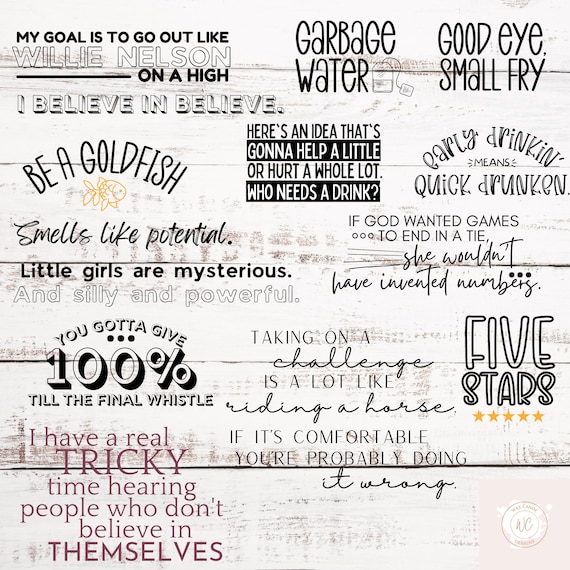 MY GOAL IS TO GO OUT LIKE
WILLIE NELSON
ON A HIGH
I BELIEVE IN BELIEVE.
GARBAGE
WATER
GOOD EYE,
SMALL FRY
BE A GOLDFISH
HERE'S AN IDEA THAT'S
GONNA HELP A LITTLE
OR HURT A WHOLE LOT.
WHO NEEDS A DRINK?
EARLY DRINKIN'
MEANS
QUICK DRUNKEN.
Smells like potential.
Little girls are mysterious.
And silly and powerful.
IF GOD WANTED GAMES
TO END IN A TIE,
she wouldn't
have invented numbers.
YOU GOTTA GIVE
100%
TILL THE FINAL WHISTLE
TAKING ON A
challenge
IS A LOT LIKE
riding a horse.
IF IT'S COMFORTABLE
YOU'RE PROBABLY DOING
it wrong.
FIVE
STARS
I have a real
TRICKY
time hearing
people who don't
believe in
THEMSELVES
WC